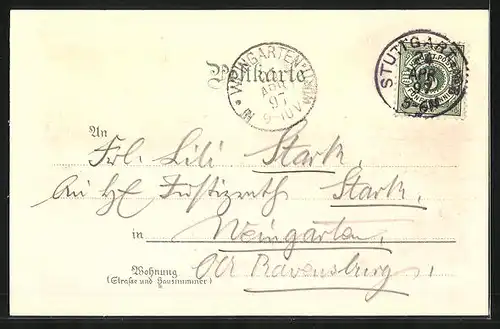 STUTTGART
APR
97
WEINGARTEN
APR
97
9-10 V
Postkarte
An
Frl. Lili Stark,
Stark,
in Weingarten,
Ravensburg.
Wohnung
(Straße und Hausnummer)